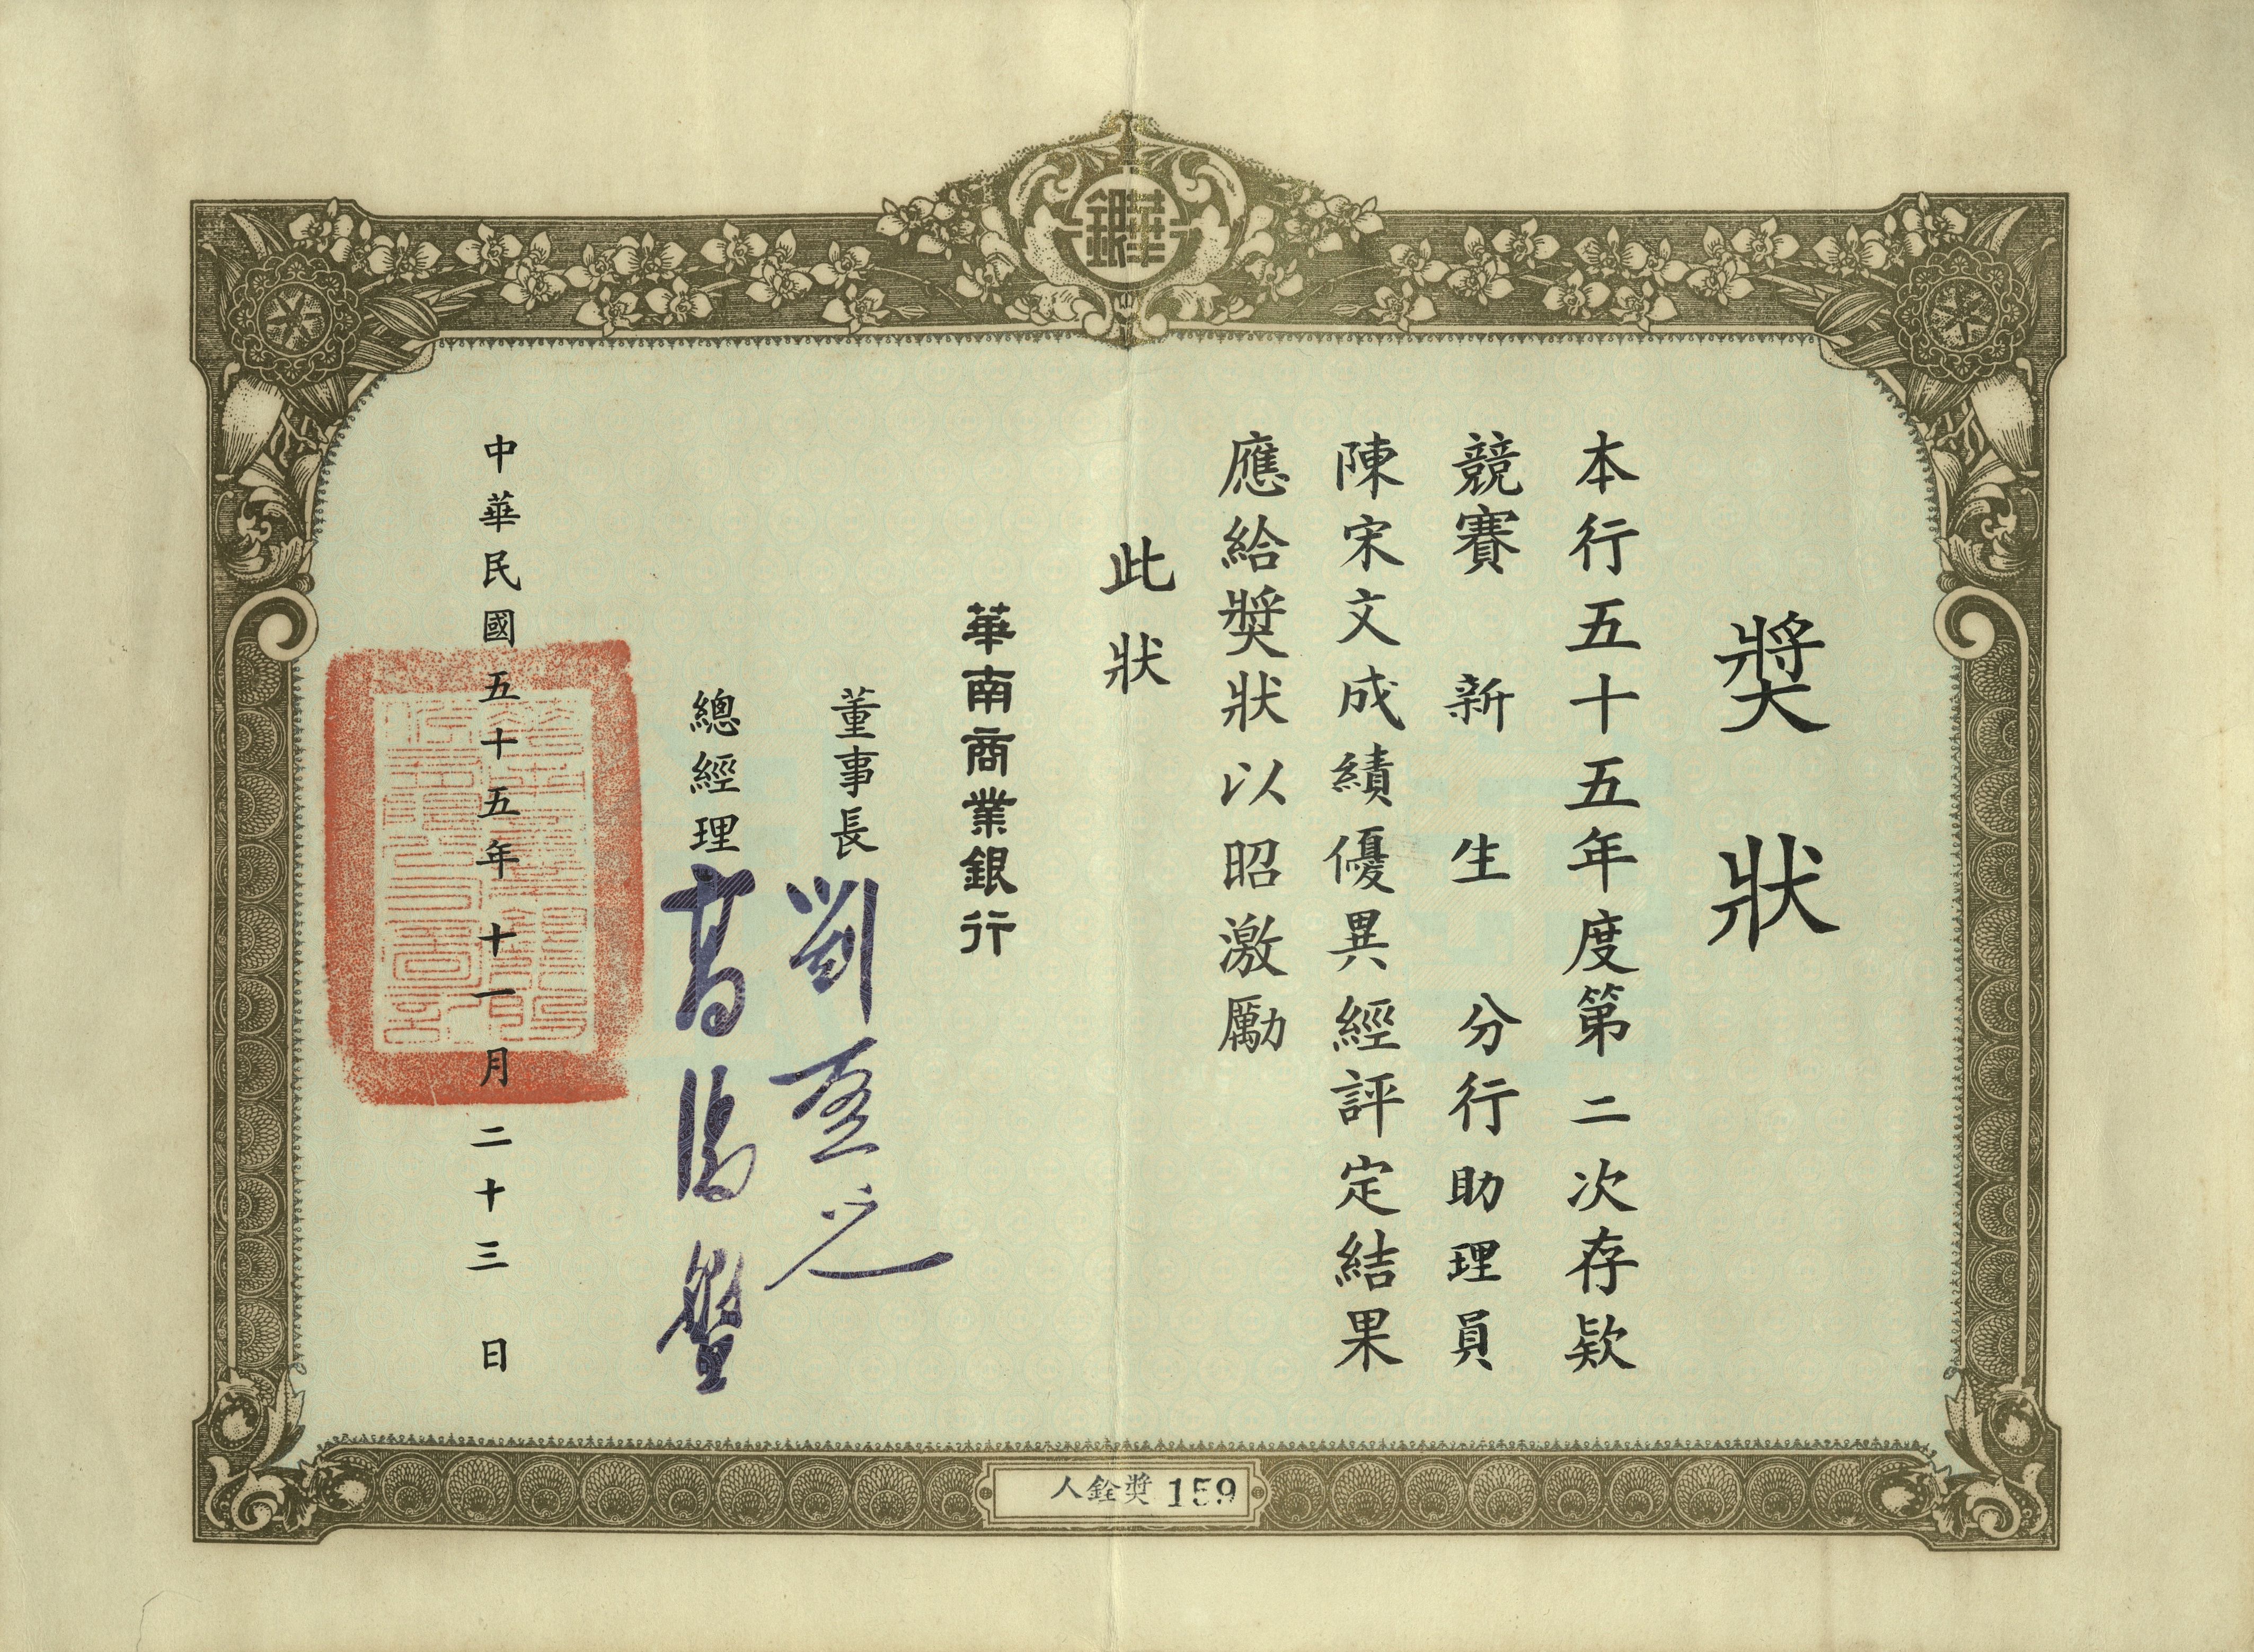 獎狀
本行五十五年度第二次存欵
競賽新生分行助理員
陳宋文成績優異經評定結果
應給獎狀以昭激勵
此狀
華南商業銀行
董事長 劉啓光
總經理 高湯盤
中華民國五十五年十一月二十三日
華銀
人銓獎 159